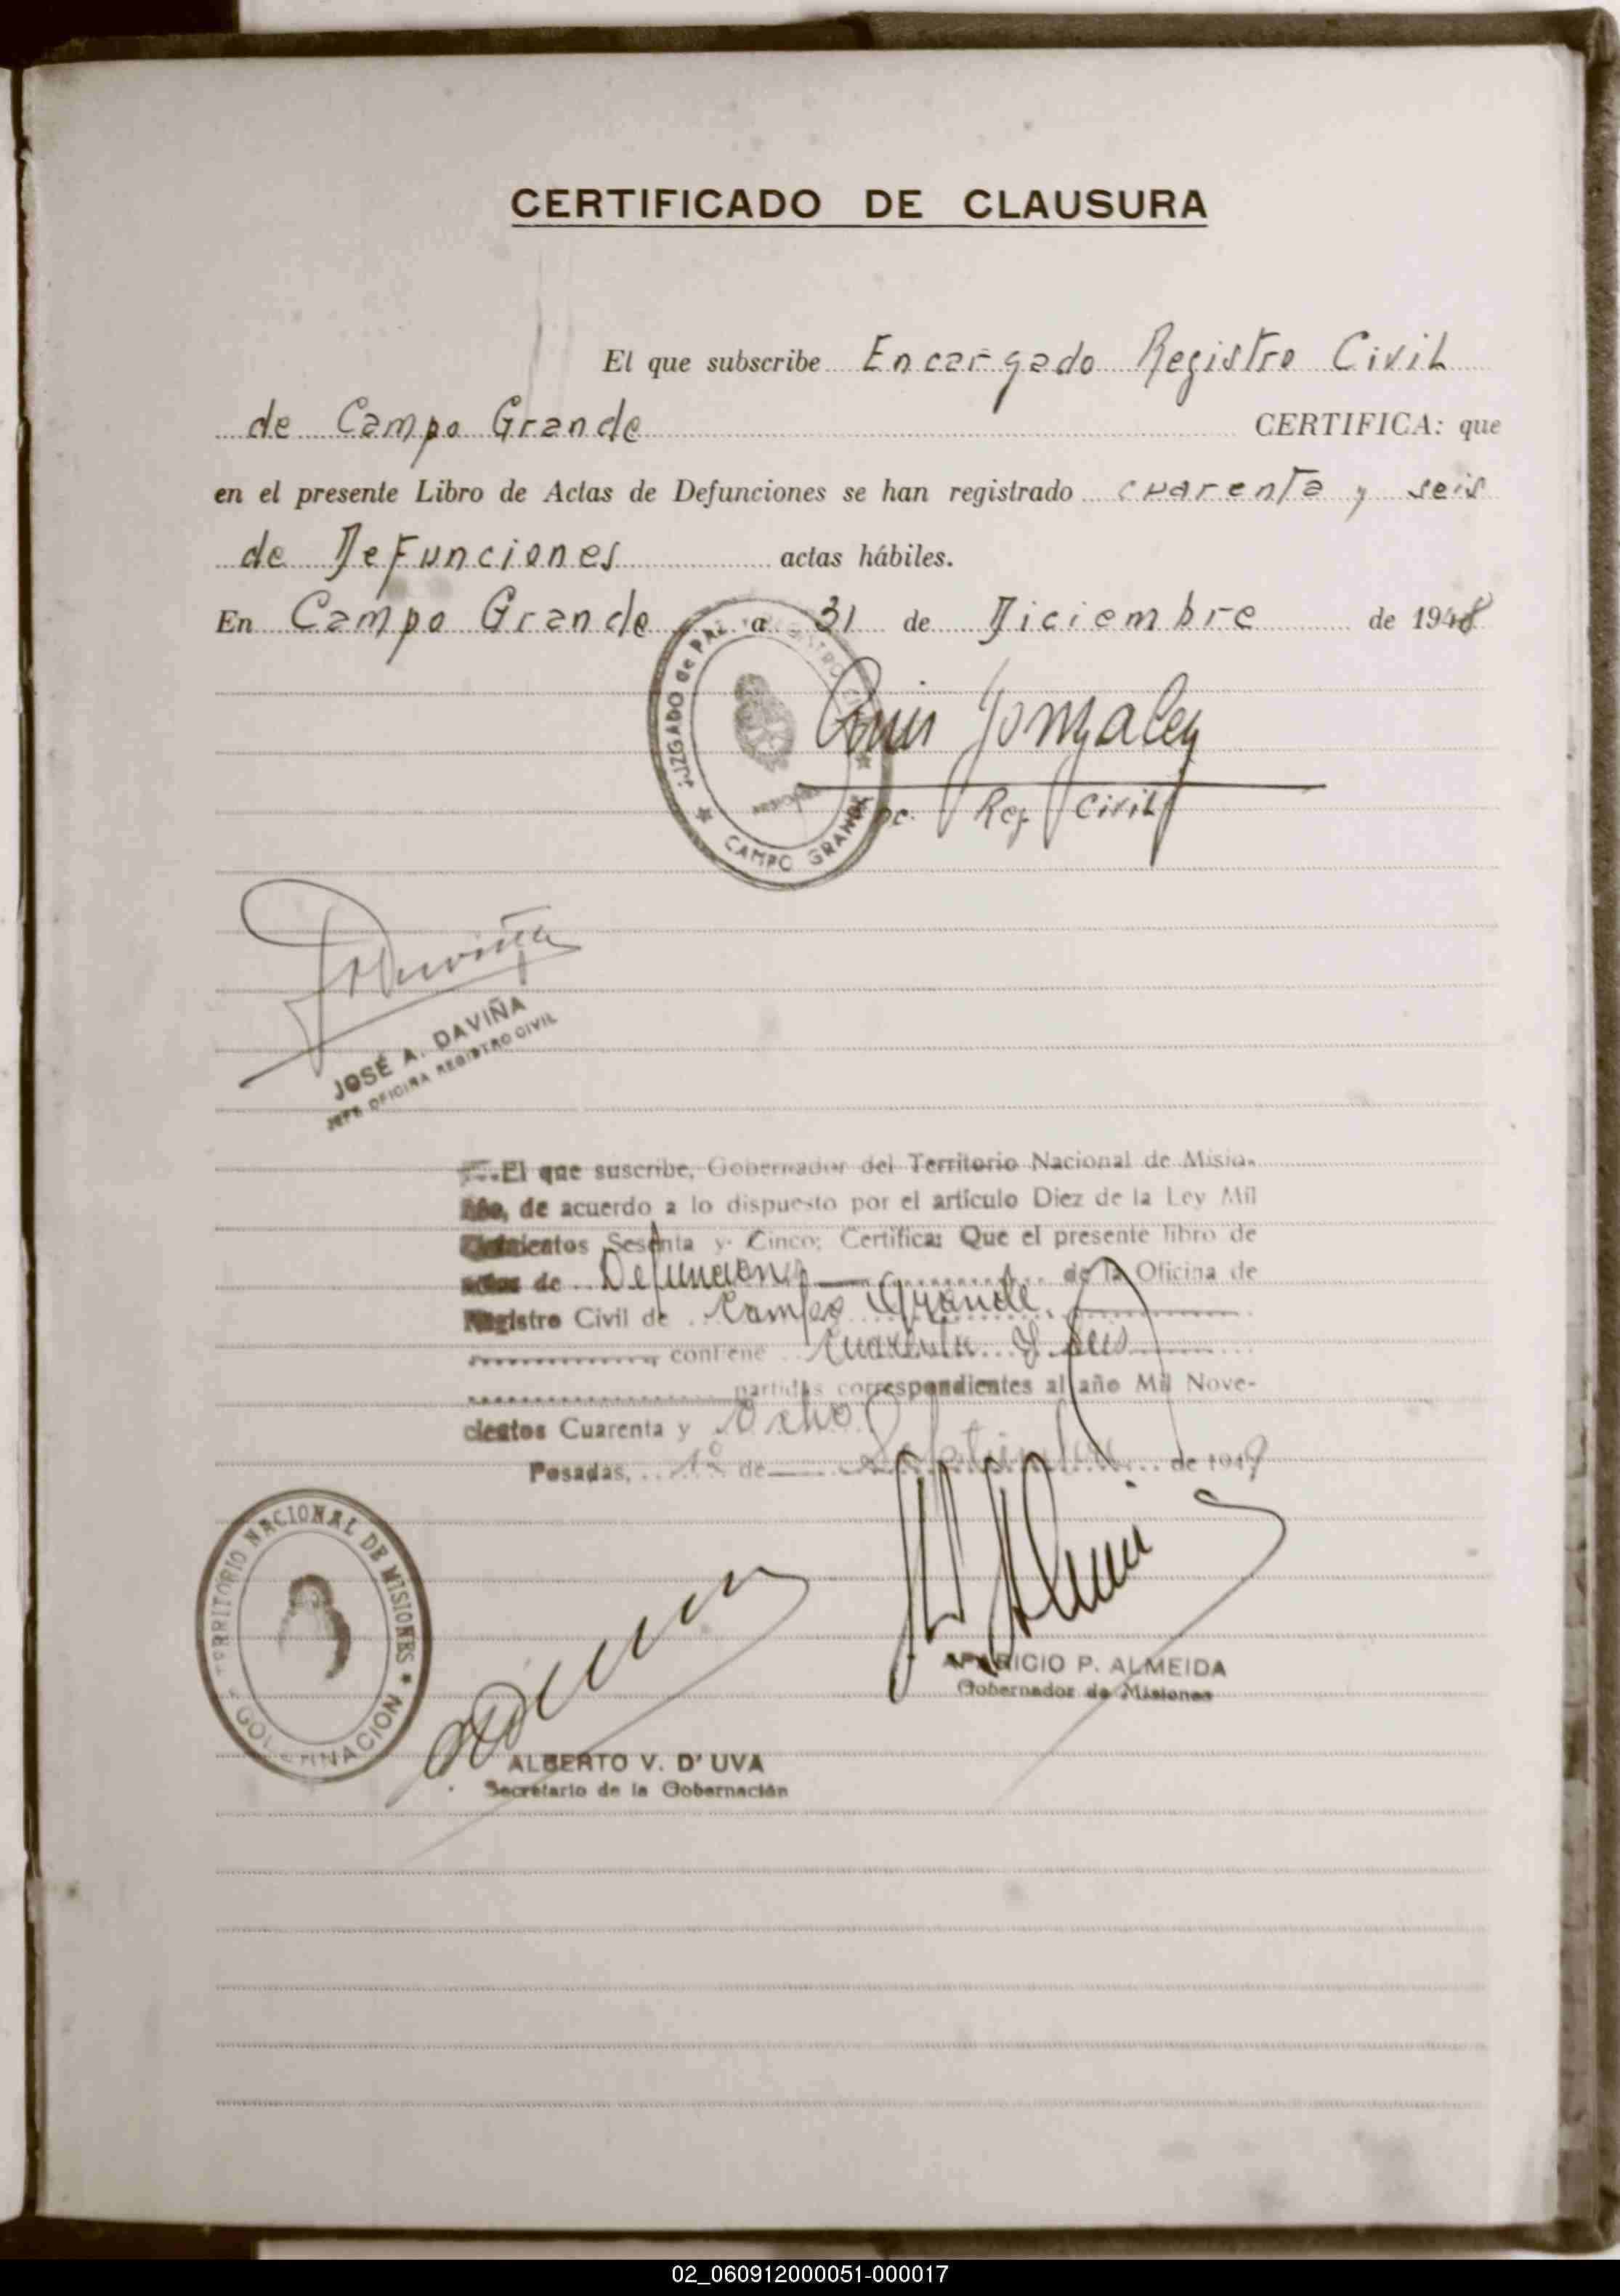 CERTIFICADO DE CLAUSURA
El que subscribe Encargado Registro Civil
de Campo Grande CERTIFICA: que
en el presente Libro de Actas de Defunciones se han registrado cuarenta y seis
de Defunciones actas hábiles.
En Campo Grande a 31 de Diciembre de 1948
JUZGADO de PAZ
CAMPO GRANDE
Luis Gonzalez
Reg Civil
JOSÉ A. DAVIÑA
JEFE OFICINA REGISTRO CIVIL
El que suscribe, Gobernador del Territorio Nacional de Misio-
de acuerdo a lo dispuesto por el artículo Diez de la Ley Mil
Sesenta y Cinco; Certifica: Que el presente libro de
de Defunciones de la Oficina de
Registro Civil de Campo Grande.
contiene cuarenta y seis
partidas correspondientes al año Mil Nove-
cientos Cuarenta y Ocho
Posadas, 1º de Septiembre de 1949
TERRITORIO NACIONAL DE MISIONES
GOBERNACION
APARICIO P. ALMEIDA
Gobernador de Misiones
ALBERTO V. D' UVA
Secretario de la Gobernación
02_060912000051-000017